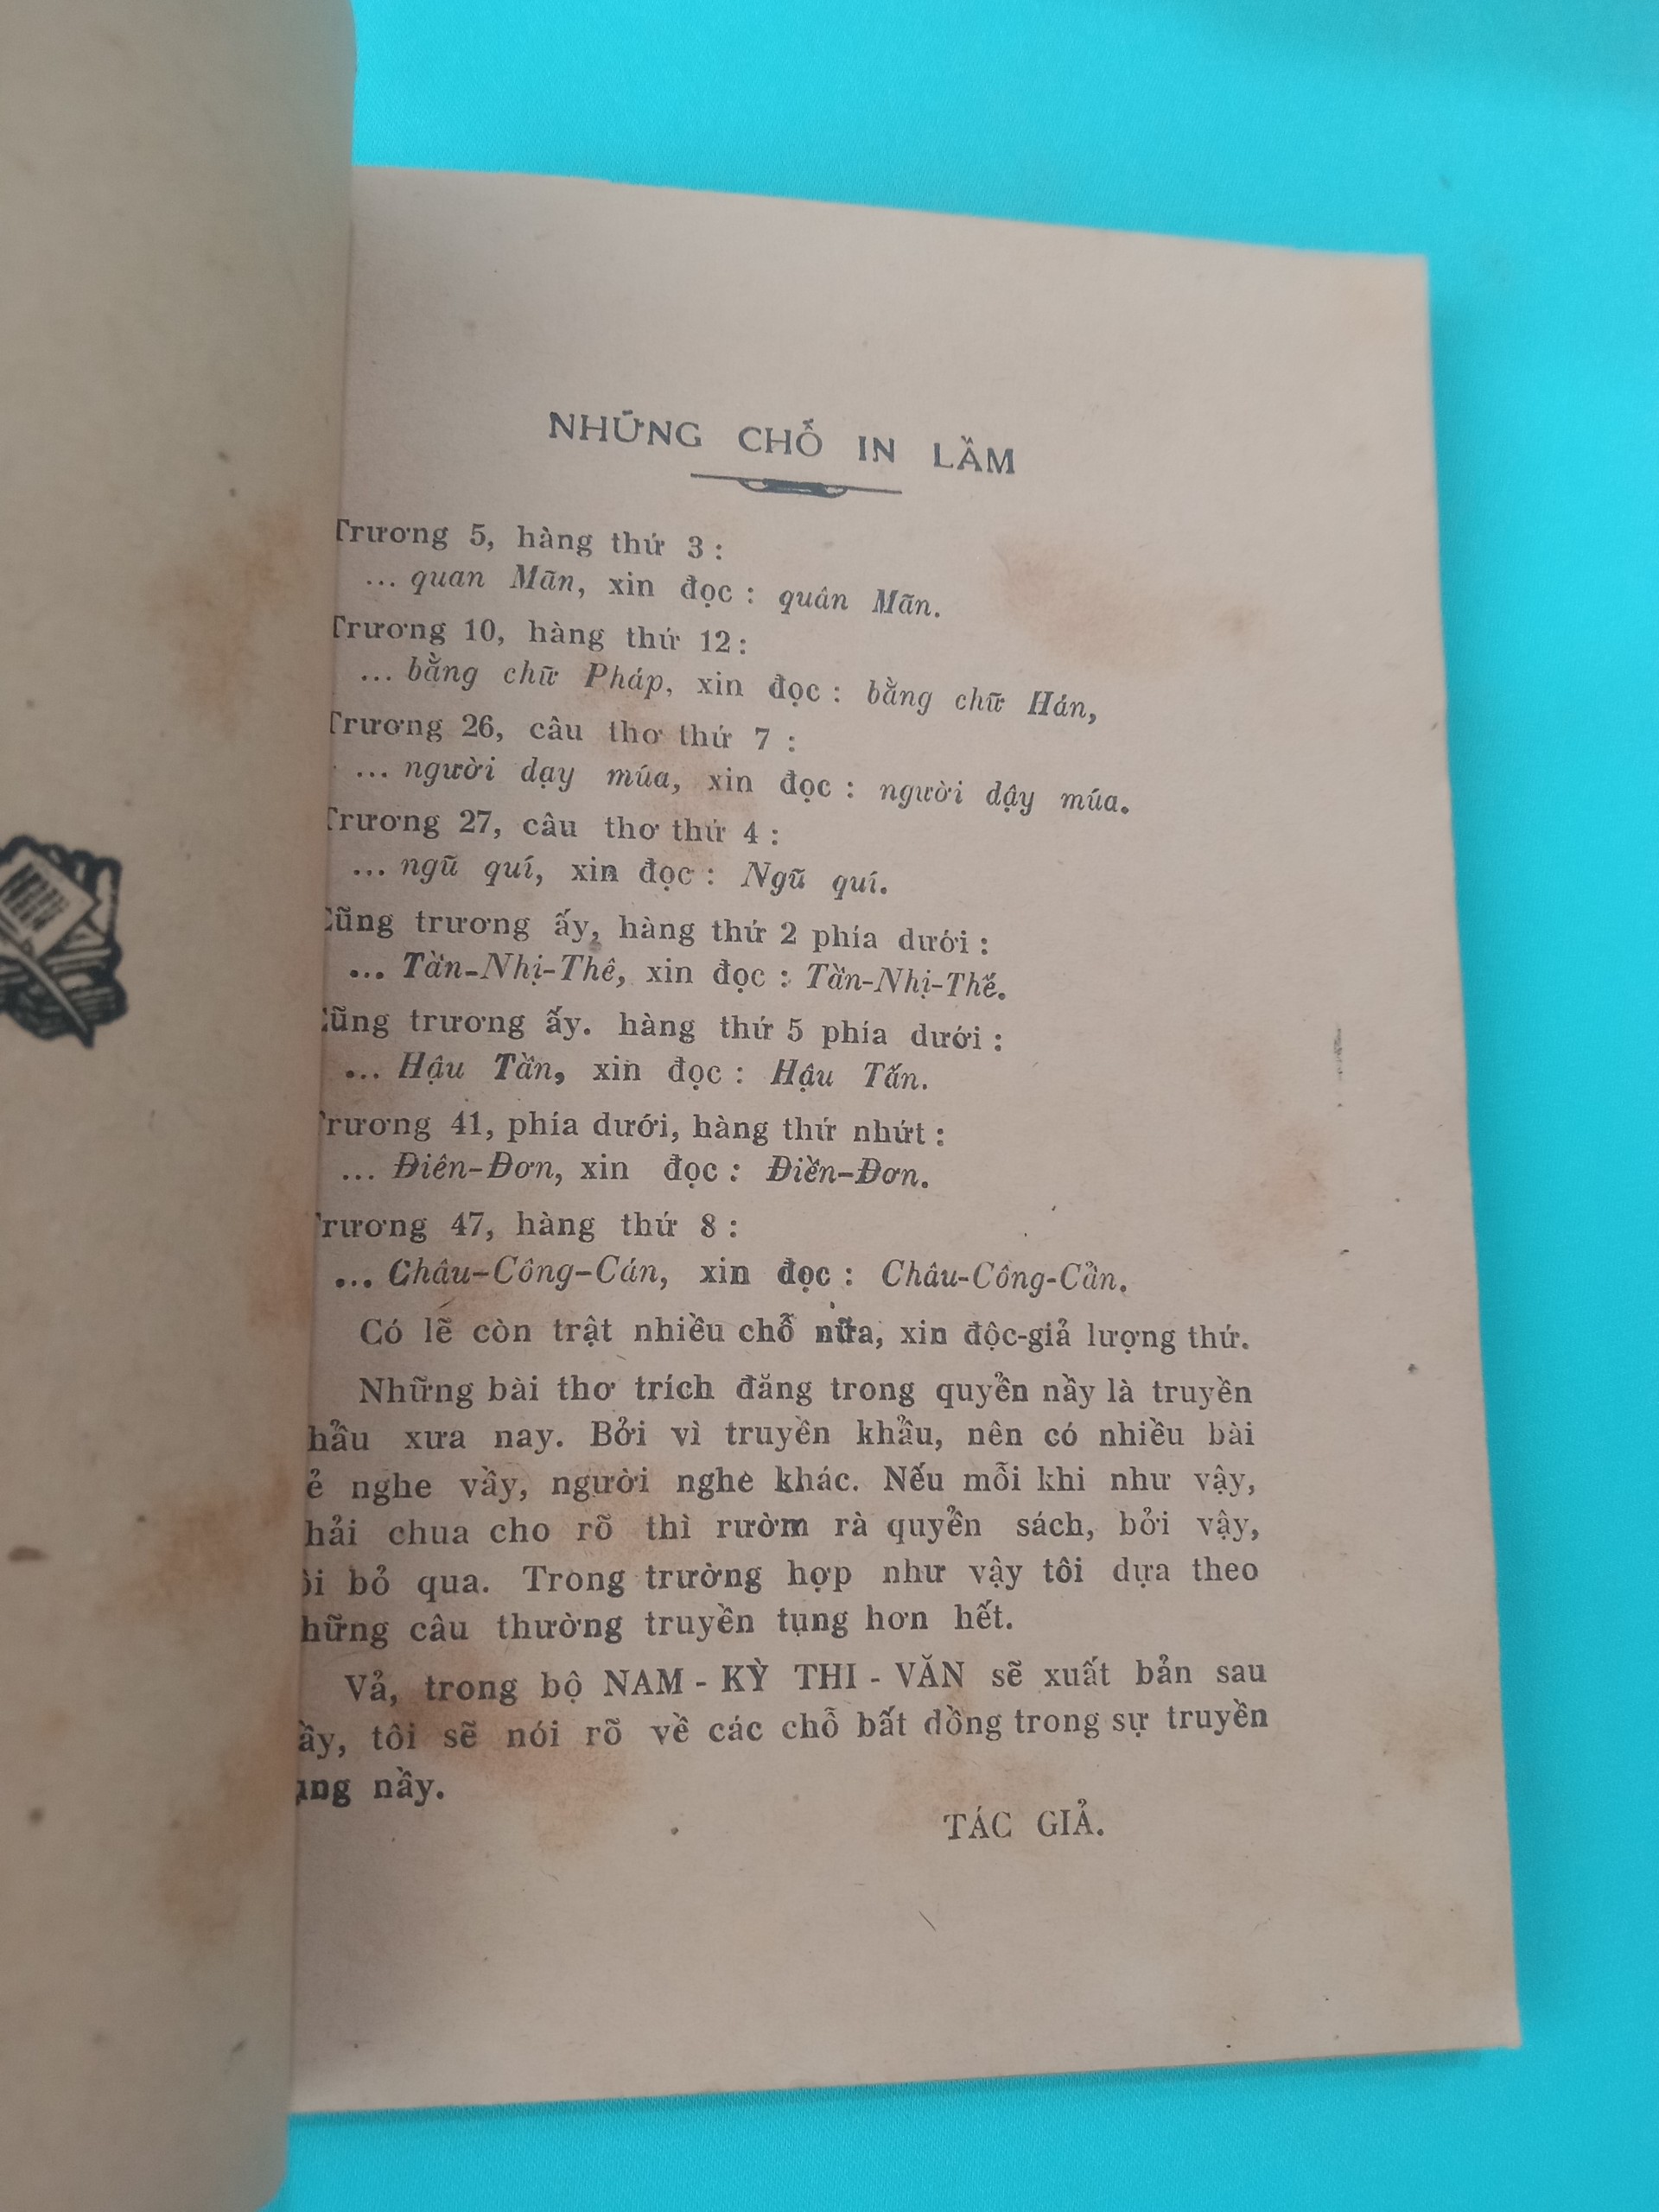 NHỮNG CHỖ IN LẦM
Trương 5, hàng thứ 3 :
... quan Mãn, xin đọc : quân Mãn.
Trương 10, hàng thứ 12 :
... bằng chữ Pháp, xin đọc : bằng chữ Hán,
Trương 26, câu thơ thứ 7 :
... người dạy múa, xin đọc : người dậy múa.
Trương 27, câu thơ thứ 4 :
... ngũ quí, xin đọc : Ngũ quí.
Cũng trương ấy, hàng thứ 2 phía dưới :
... Tần-Nhị-Thê, xin đọc : Tần-Nhị-Thế.
Cũng trương ấy. hàng thứ 5 phía dưới :
... Hậu Tần, xin đọc : Hậu Tấn.
Trương 41, phía dưới, hàng thứ nhứt :
... Điên-Đơn, xin đọc : Điền-Đơn.
Trương 47, hàng thứ 8 :
... Châu-Công-Cán, xin đọc : Châu-Công-Cẩn.
Có lẽ còn trật nhiều chỗ nữa, xin độc-giả lượng thứ.
Những bài thơ trích đăng trong quyển nầy là truyền
hẩu xưa nay. Bởi vì truyền khẩu, nên có nhiều bài
ẻ nghe vầy, người nghe khác. Nếu mỗi khi như vậy,
hải chua cho rõ thì rườm rà quyển sách, bởi vậy,
ôi bỏ qua. Trong trường hợp như vậy tôi dựa theo
hững câu thường truyền tụng hơn hết.
Vả, trong bộ NAM - KỲ THI - VĂN sẽ xuất bản sau
ầy, tôi sẽ nói rõ về các chỗ bất đồng trong sự truyền
ụng nầy.
TÁC GIẢ.